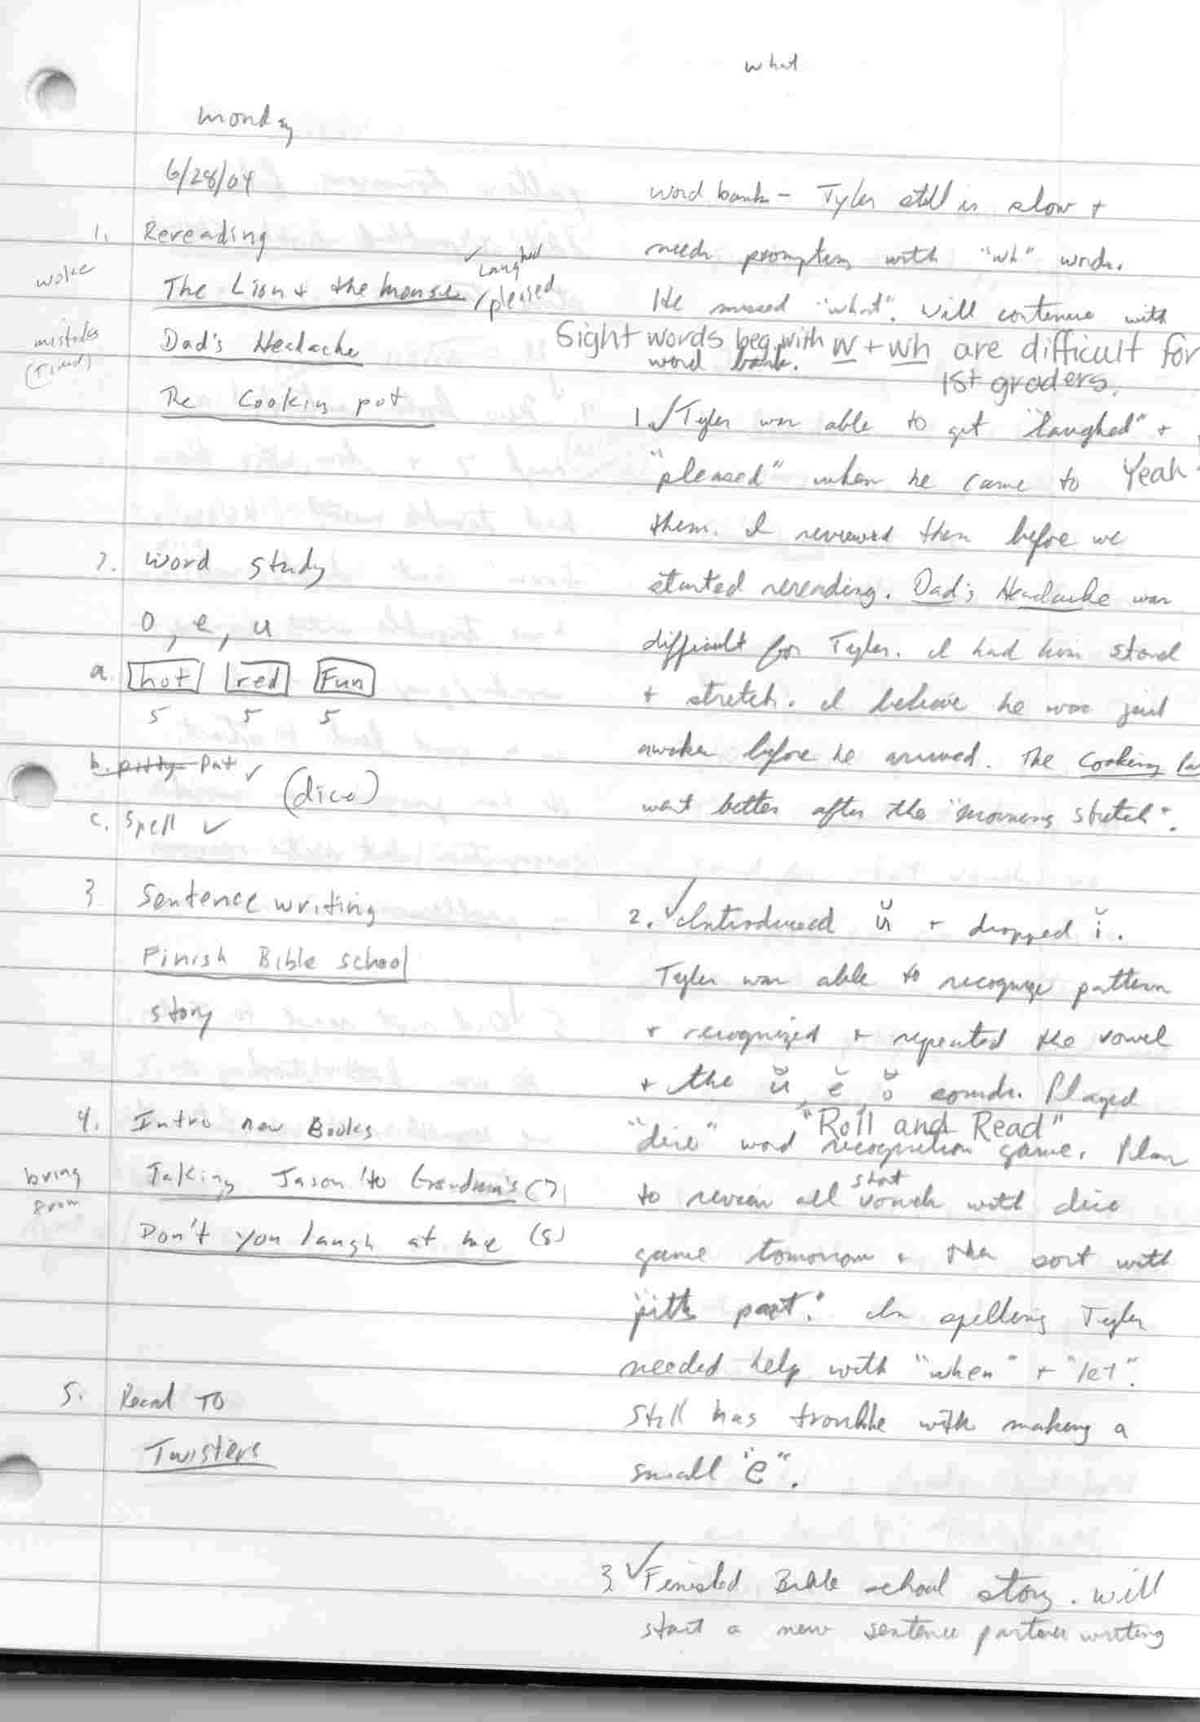 what
Monday
6/28/04
1. Rereading
woke
The Lion & the mouse
✓ laughed
/ pleased
mistakes
(Tired)
Dad's Headache
The Cooking pot
2. word study
o, e, u
a. hot red Fun
5 5 5
b. Pat ✓
(dice)
c. Spell ✓
3 Sentence writing
Finish Bible school
story
4. Intro new Books
bring
from
Taking Jason to Grandma's (7)
Don't you laugh at me (8)
5. Read To
Twisters
word bank - Tyler still is slow +
needs prompting with "wh" words.
He missed "what". Will continue with
word bank.
Sight words beg. with w + wh are difficult for
1st graders.
1. ✓ Tyler was able to get "laughed" +
"pleased" when he came to
Yeah
them. I reviewed them before we
started rereading. Dad's Headache was
difficult for Tyler. I had him stand
+ stretch. I believe he was just
awaken before he arrived. The Cooking
went better after the "morning stretch".
2. ✓ Introduced ŭ + dropped ĭ.
Tyler was able to recognize pattern
+ recognized + repeated the vowel
+ the ŭ, ĕ, ŏ sounds. Played
"Roll and Read"
"dice" word recognition game. Plan
to review all short vowels with dice
game tomorrow + then sort with
"pitty pat." In spelling Tyler
needed help with "when" + "let".
Still has trouble with making a
small "e".
3 ✓ Finished Bible school story. will
start a new sentence writing